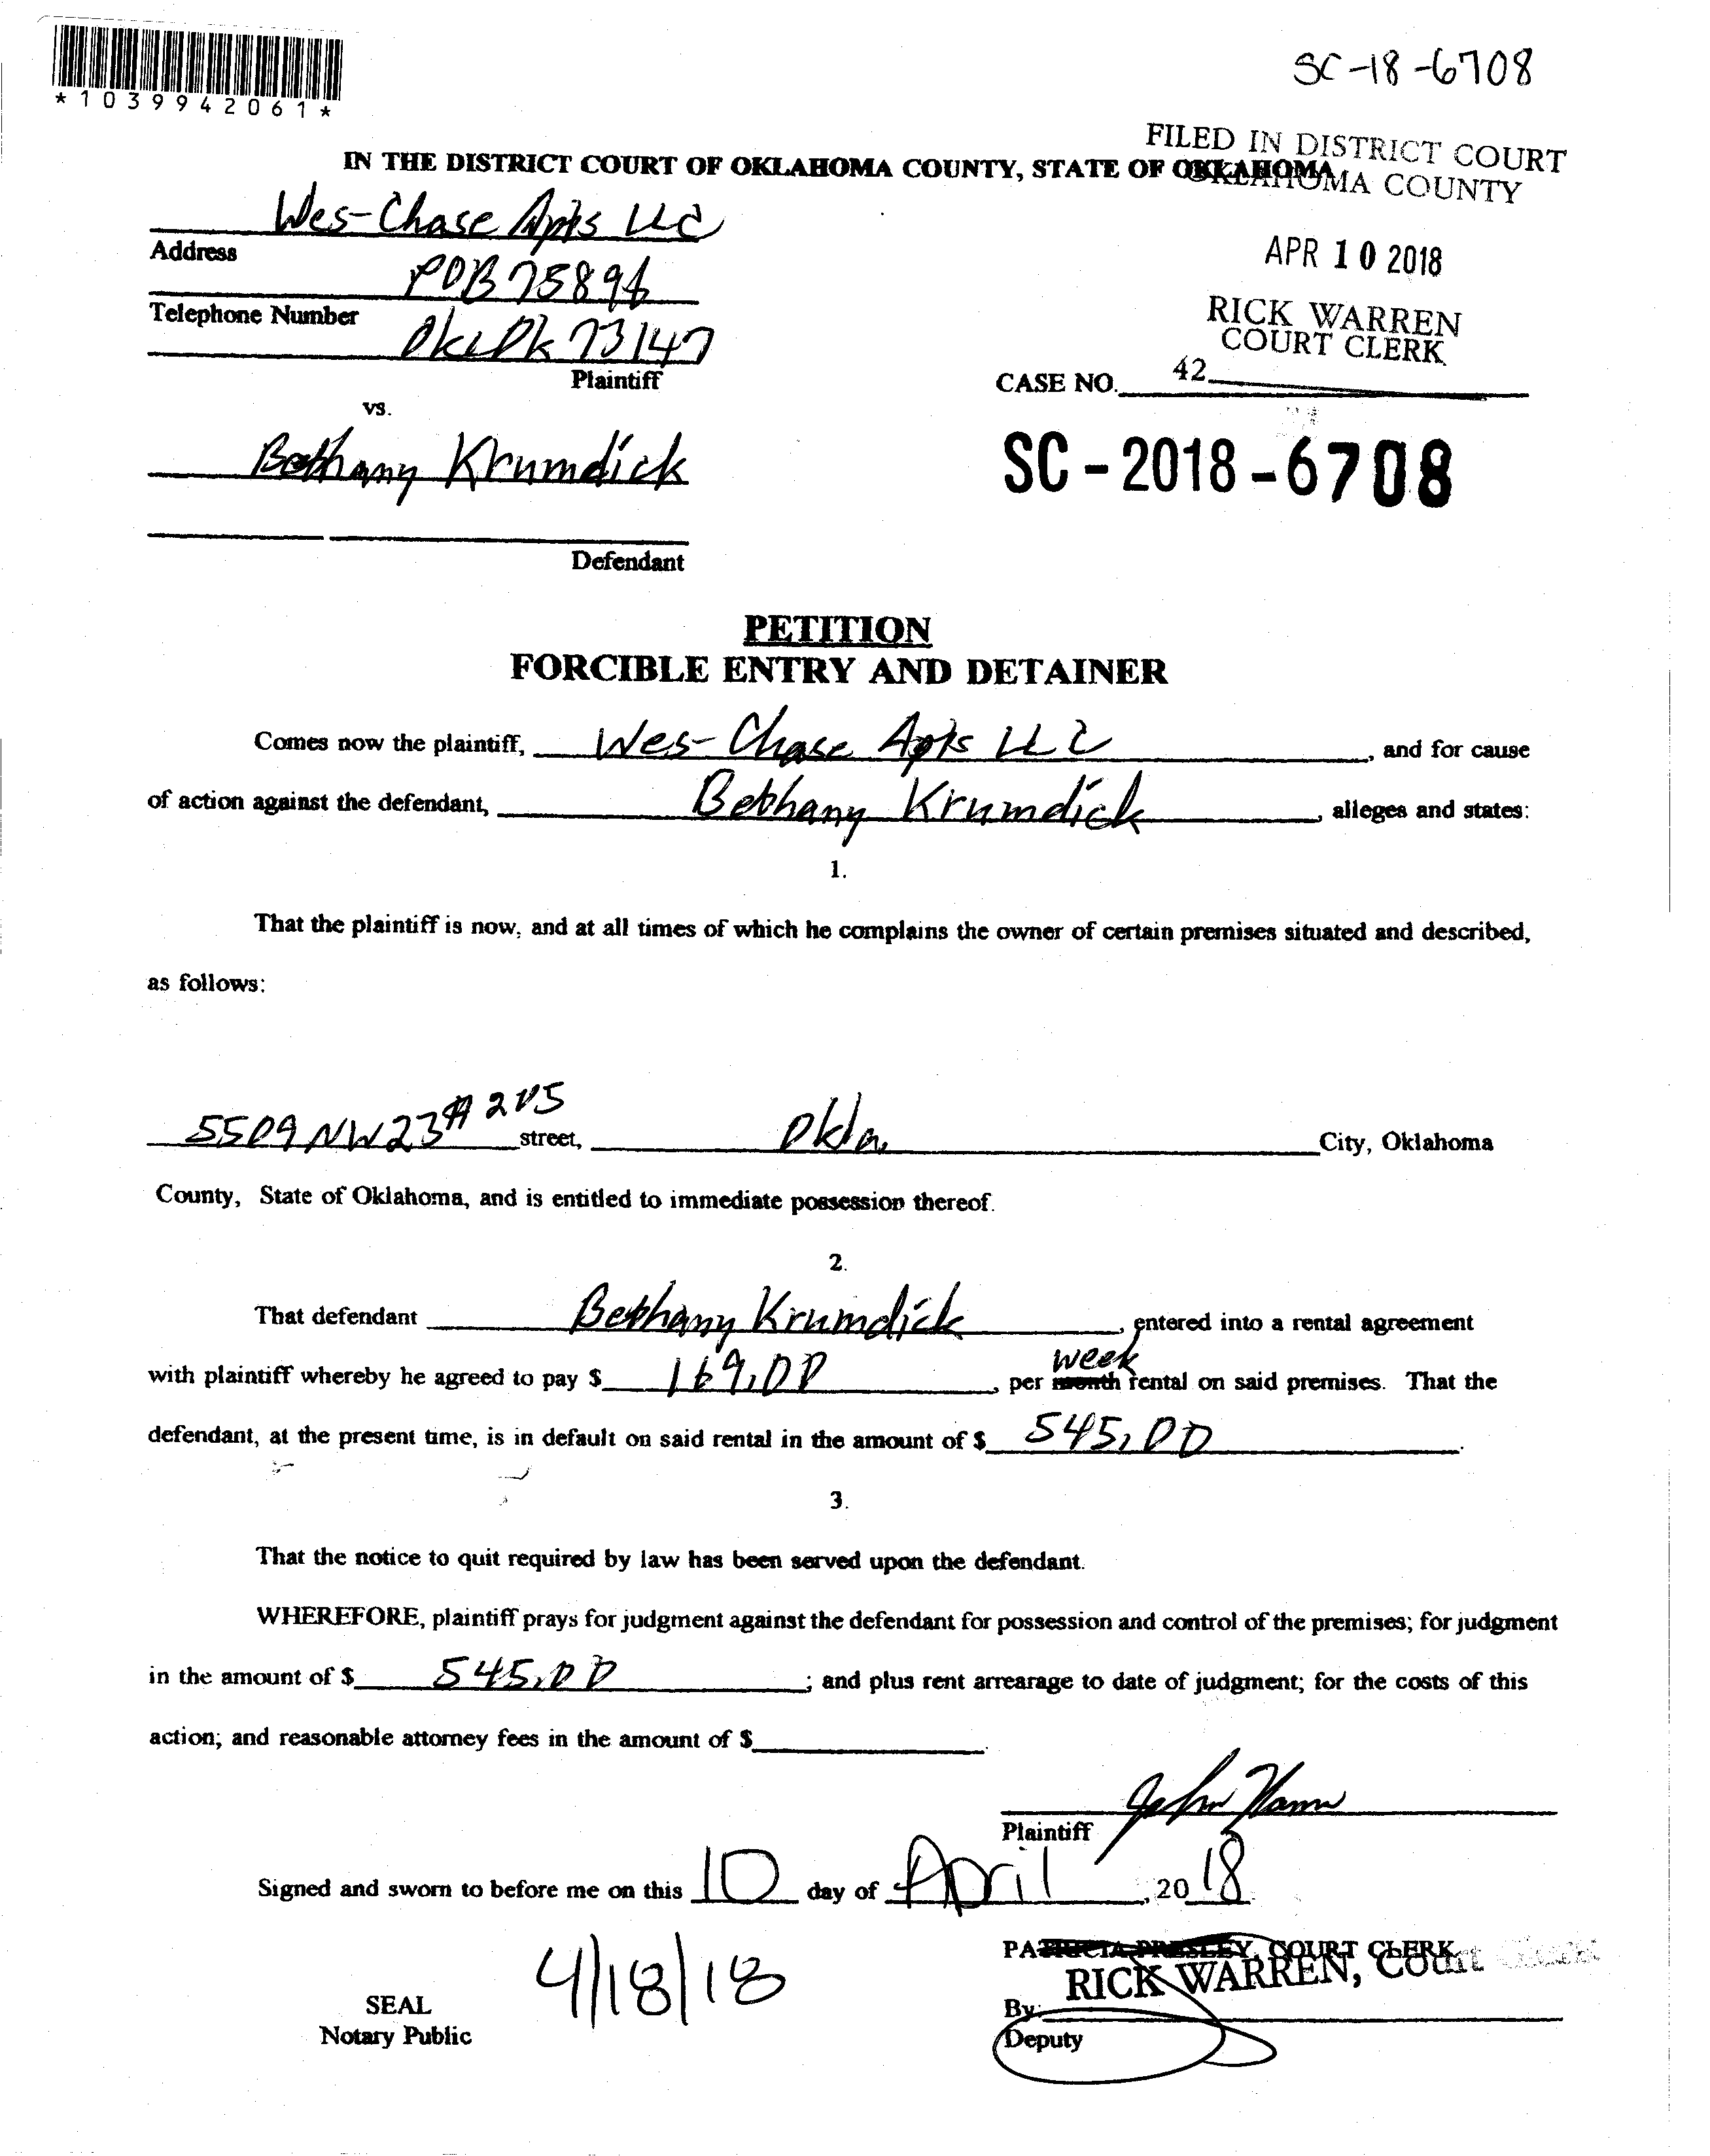 *1039942061*
SC-18-6708
FILED IN DISTRICT COURT
OKLAHOMA COUNTY
IN THE DISTRICT COURT OF OKLAHOMA COUNTY, STATE OF OKLAHOMA
Wes-Chase Apts LLC
Address
POB 75894
Telephone Number
73147
Plaintiff
APR 10 2018
RICK WARREN
COURT CLERK
CASE NO. 42
vs.
Bethany Krumdick
SC-2018-6708
Defendant
PETITION
FORCIBLE ENTRY AND DETAINER
Comes now the plaintiff, Wes-Chase Apts LLC, and for cause
of action against the defendant, Bethany Krumdick, alleges and states:
1.
That the plaintiff is now, and at all times of which he complains the owner of certain premises situated and described,
as follows:
5509 NW 23 # 205 street, Okla. City, Oklahoma
County, State of Oklahoma, and is entitled to immediate possession thereof.
2.
That defendant Bethany Krumdick, entered into a rental agreement
week
with plaintiff whereby he agreed to pay $ 169.00, per month rental on said premises. That the
defendant, at the present time, is in default on said rental in the amount of $ 545.00.
3.
That the notice to quit required by law has been served upon the defendant.
WHEREFORE, plaintiff prays for judgment against the defendant for possession and control of the premises; for judgment
in the amount of $ 545.00; and plus rent arrearage to date of judgment; for the costs of this
action; and reasonable attorney fees in the amount of $ .
Plaintiff
Signed and sworn to before me on this 10 day of April, 2018
PATRICIA PRESLEY, COURT CLERK
RICK WARREN, Court Clerk
4/18/18
SEAL
Notary Public
By:
Deputy